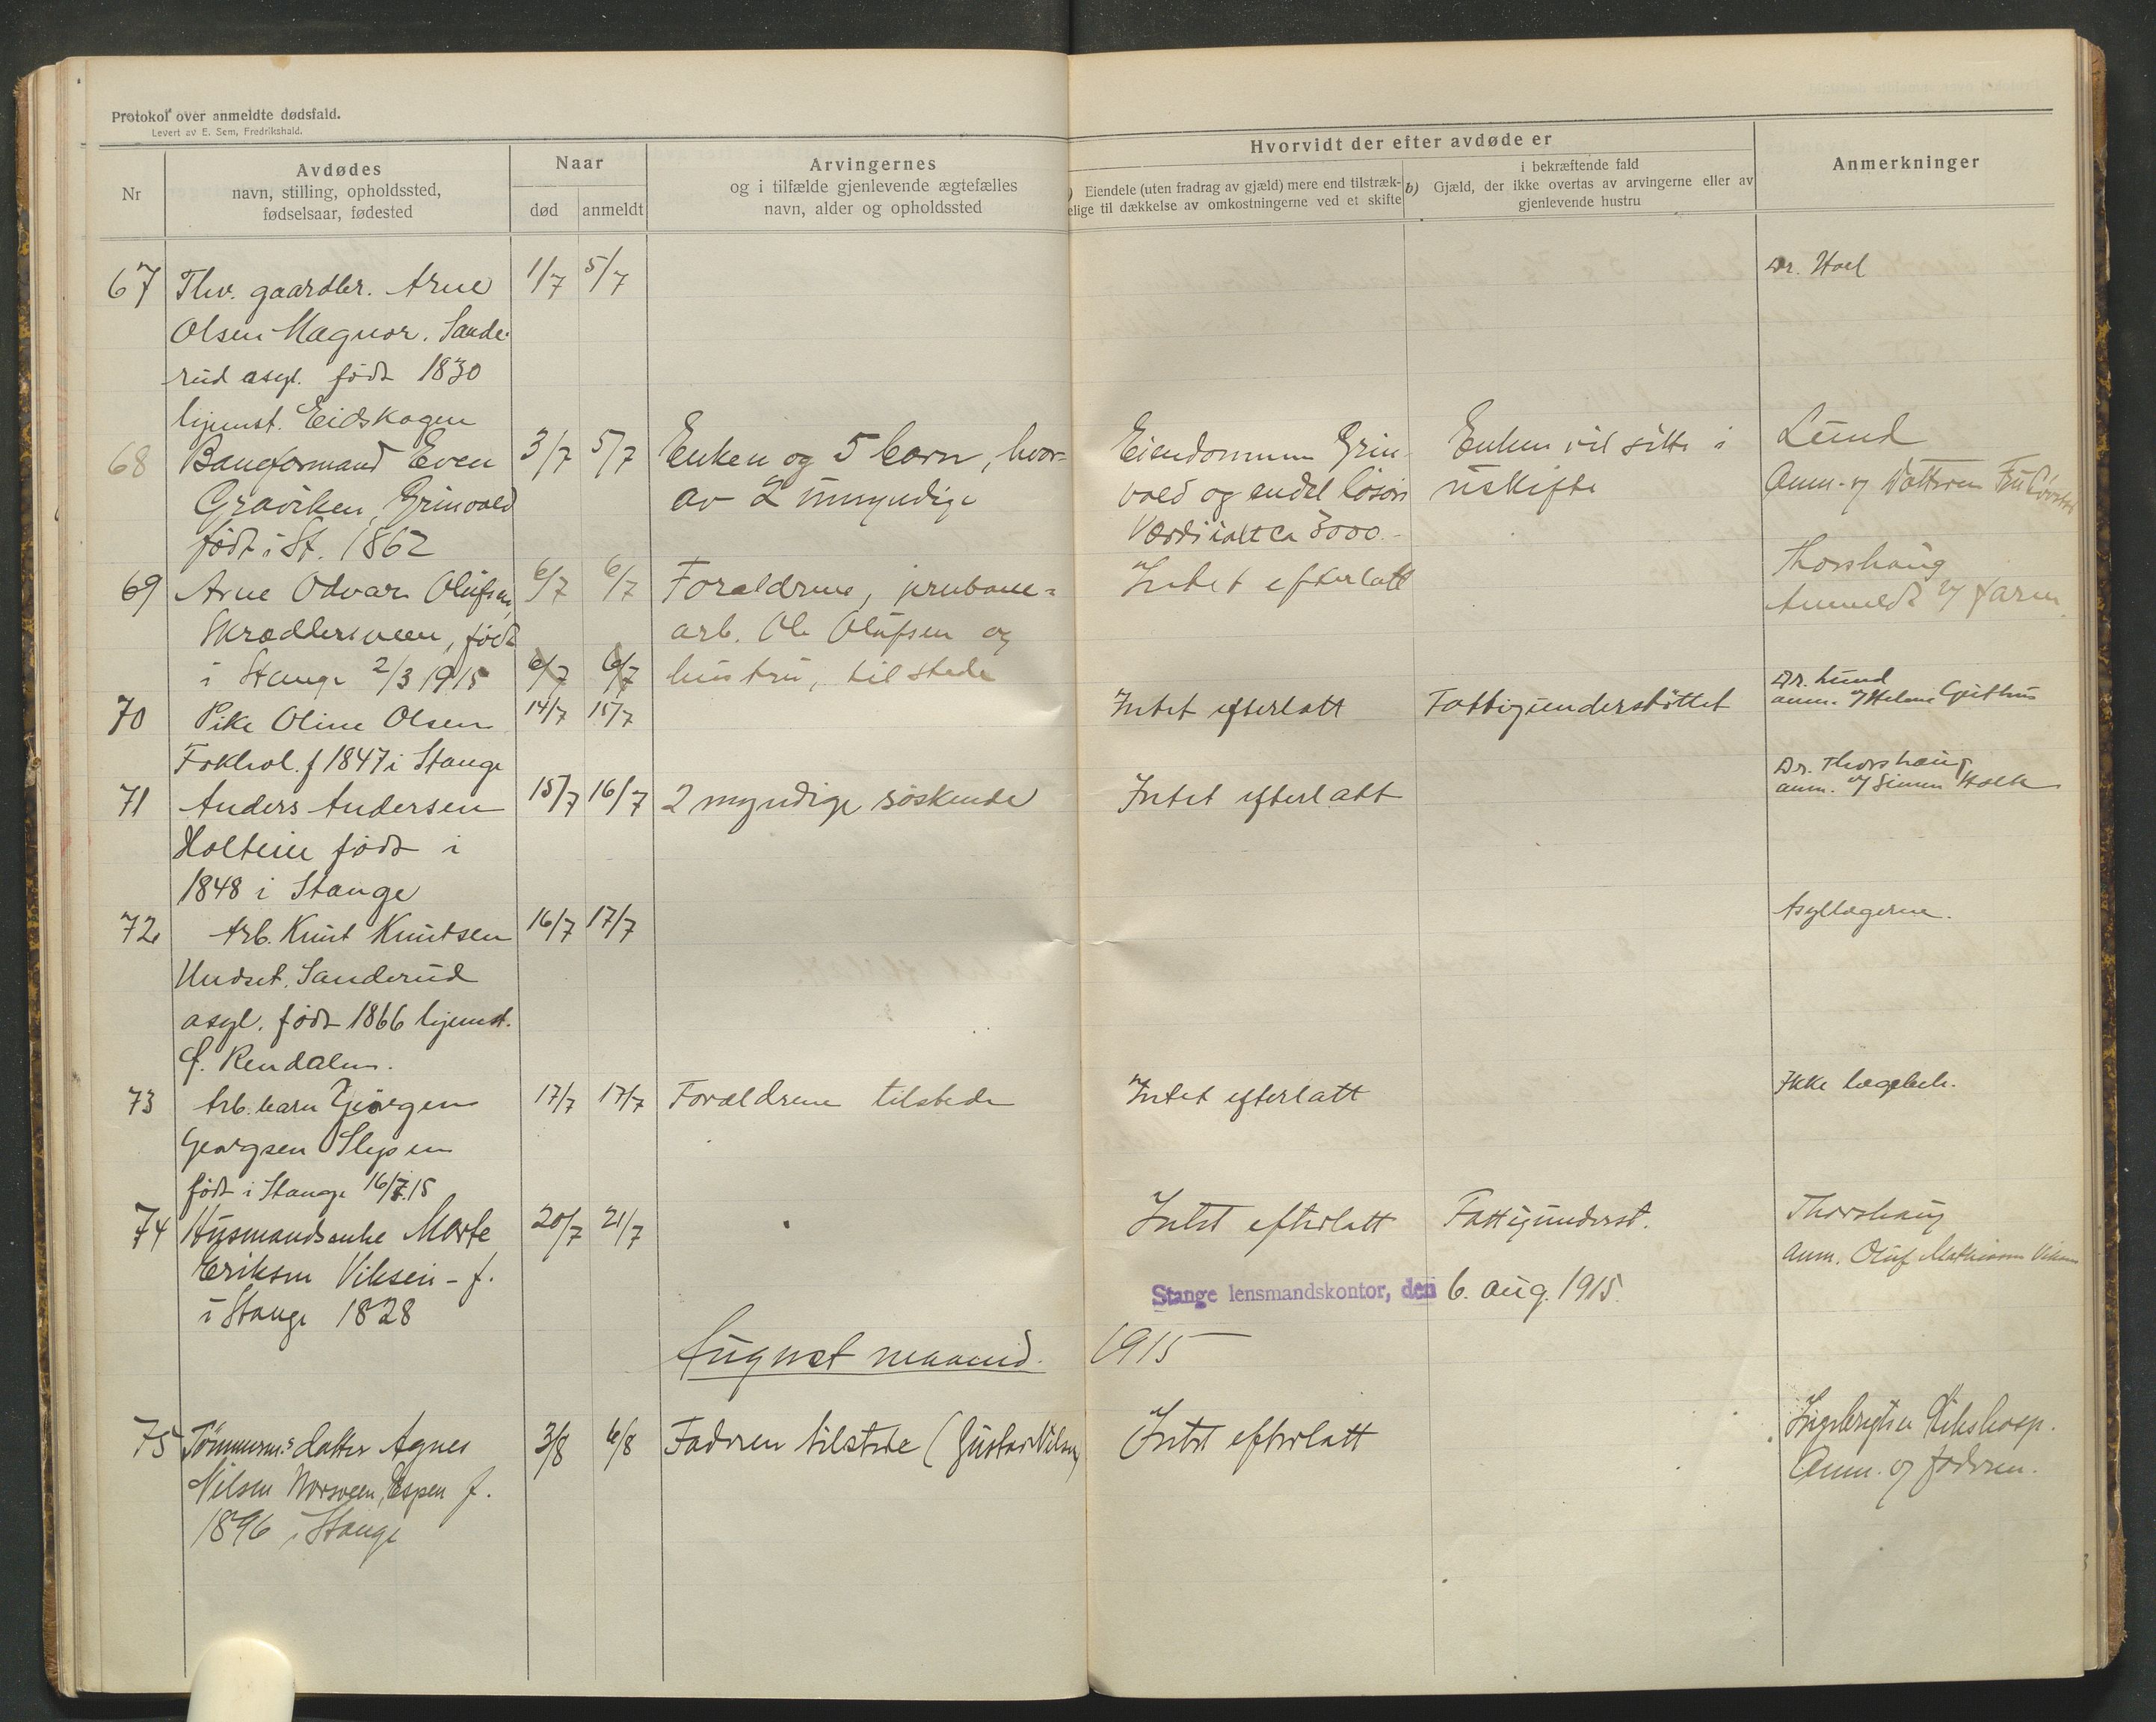 Protokol over anmeldte dødsfald.
Levert av E. Sem, Fredrikshald.
Nr
Avdødes
navn, stilling, opholdssted,
fødselsaar, fødested
Naar
død anmeldt
Arvingernes
og i tilfælde gjenlevende ægtefælles
navn, alder og opholdssted
Hvorvidt der efter avdøde er
) Eiendele (uten fradrag av gjæld) mere end tilstræk-
elige til dækkelse av omkostningerne ved et skifte
b) i bekræftende fald
Gjæld, der ikke overtas av arvingerne eller av
gjenlevende hustru
Anmerkninger
67 Thv. gaardbr. Arne 1/7 5/7 Dr. Hoel
Olsen Magnor. Sande-
rud asyl. født 1830
hjemst. Eidskogen
68 Baneformand Even 3/7 5/7 Enken og 5 barn, hvor- Eiendommen Grin- Enken vil sitte i Lund
Graviken, Grinvold av 2 umyndige vold og endel løsøre uskifte Anm. av Datteren
født i St. 1862 Værdi ialt ca 3000.-
69 Arne Odvar Olufsen, 6/7 6/7 Forældrene, jernbane- Intet efterlatt Thorshaug
Skrædderveen, født arb. Ole Olufsen og Anmeldt av faren
i Stange 2/3 1915 6/7 6/7 hustru, tilstede
70 Pike Oline Olsen 14/7 15/7 Intet efterlatt Fattigunderstøttet Dr. Lund
anm. av Helene Guthus
Fokhol. f 1847 i Stange
71 Anders Andersen 15/7 16/7 2 myndige søskende Intet efterlatt Dr. Thorshaug
anm. av Simen Holte
Holteie født i
1848 i Stange
72 Arb. Knut Knutsen 16/7 17/7 Asyllægerne.
Undset. Sanderud
asyl. født 1866 hjemst.
f. Rendalen.
73 Arb. barn Gjørgen 17/7 17/7 Forældrene tilstede Intet efterlatt Ikke lægebeh.
Georgsen Slepsen
født i Stange 16/7.15
74 Husmandsenke Marte 20/7 21/7 Intet efterlatt Fattigunderst. Thorshaug
Eriksen Viksen - f. anm. Oluf Mathisen Viksen
i Stange 1828
Stange lensmandskontor, den 6. aug. 1915.
August maaned. 1915
75 Tømmerm.s datter Agnes 3/8 6/8 Faderen tilstede (Gustav Nilsen) Intet efterlatt Ingebrigtsen Rikshosp.
Nilsen Norsveen, Espen f. Anm. av faderen.
1896 i Stange